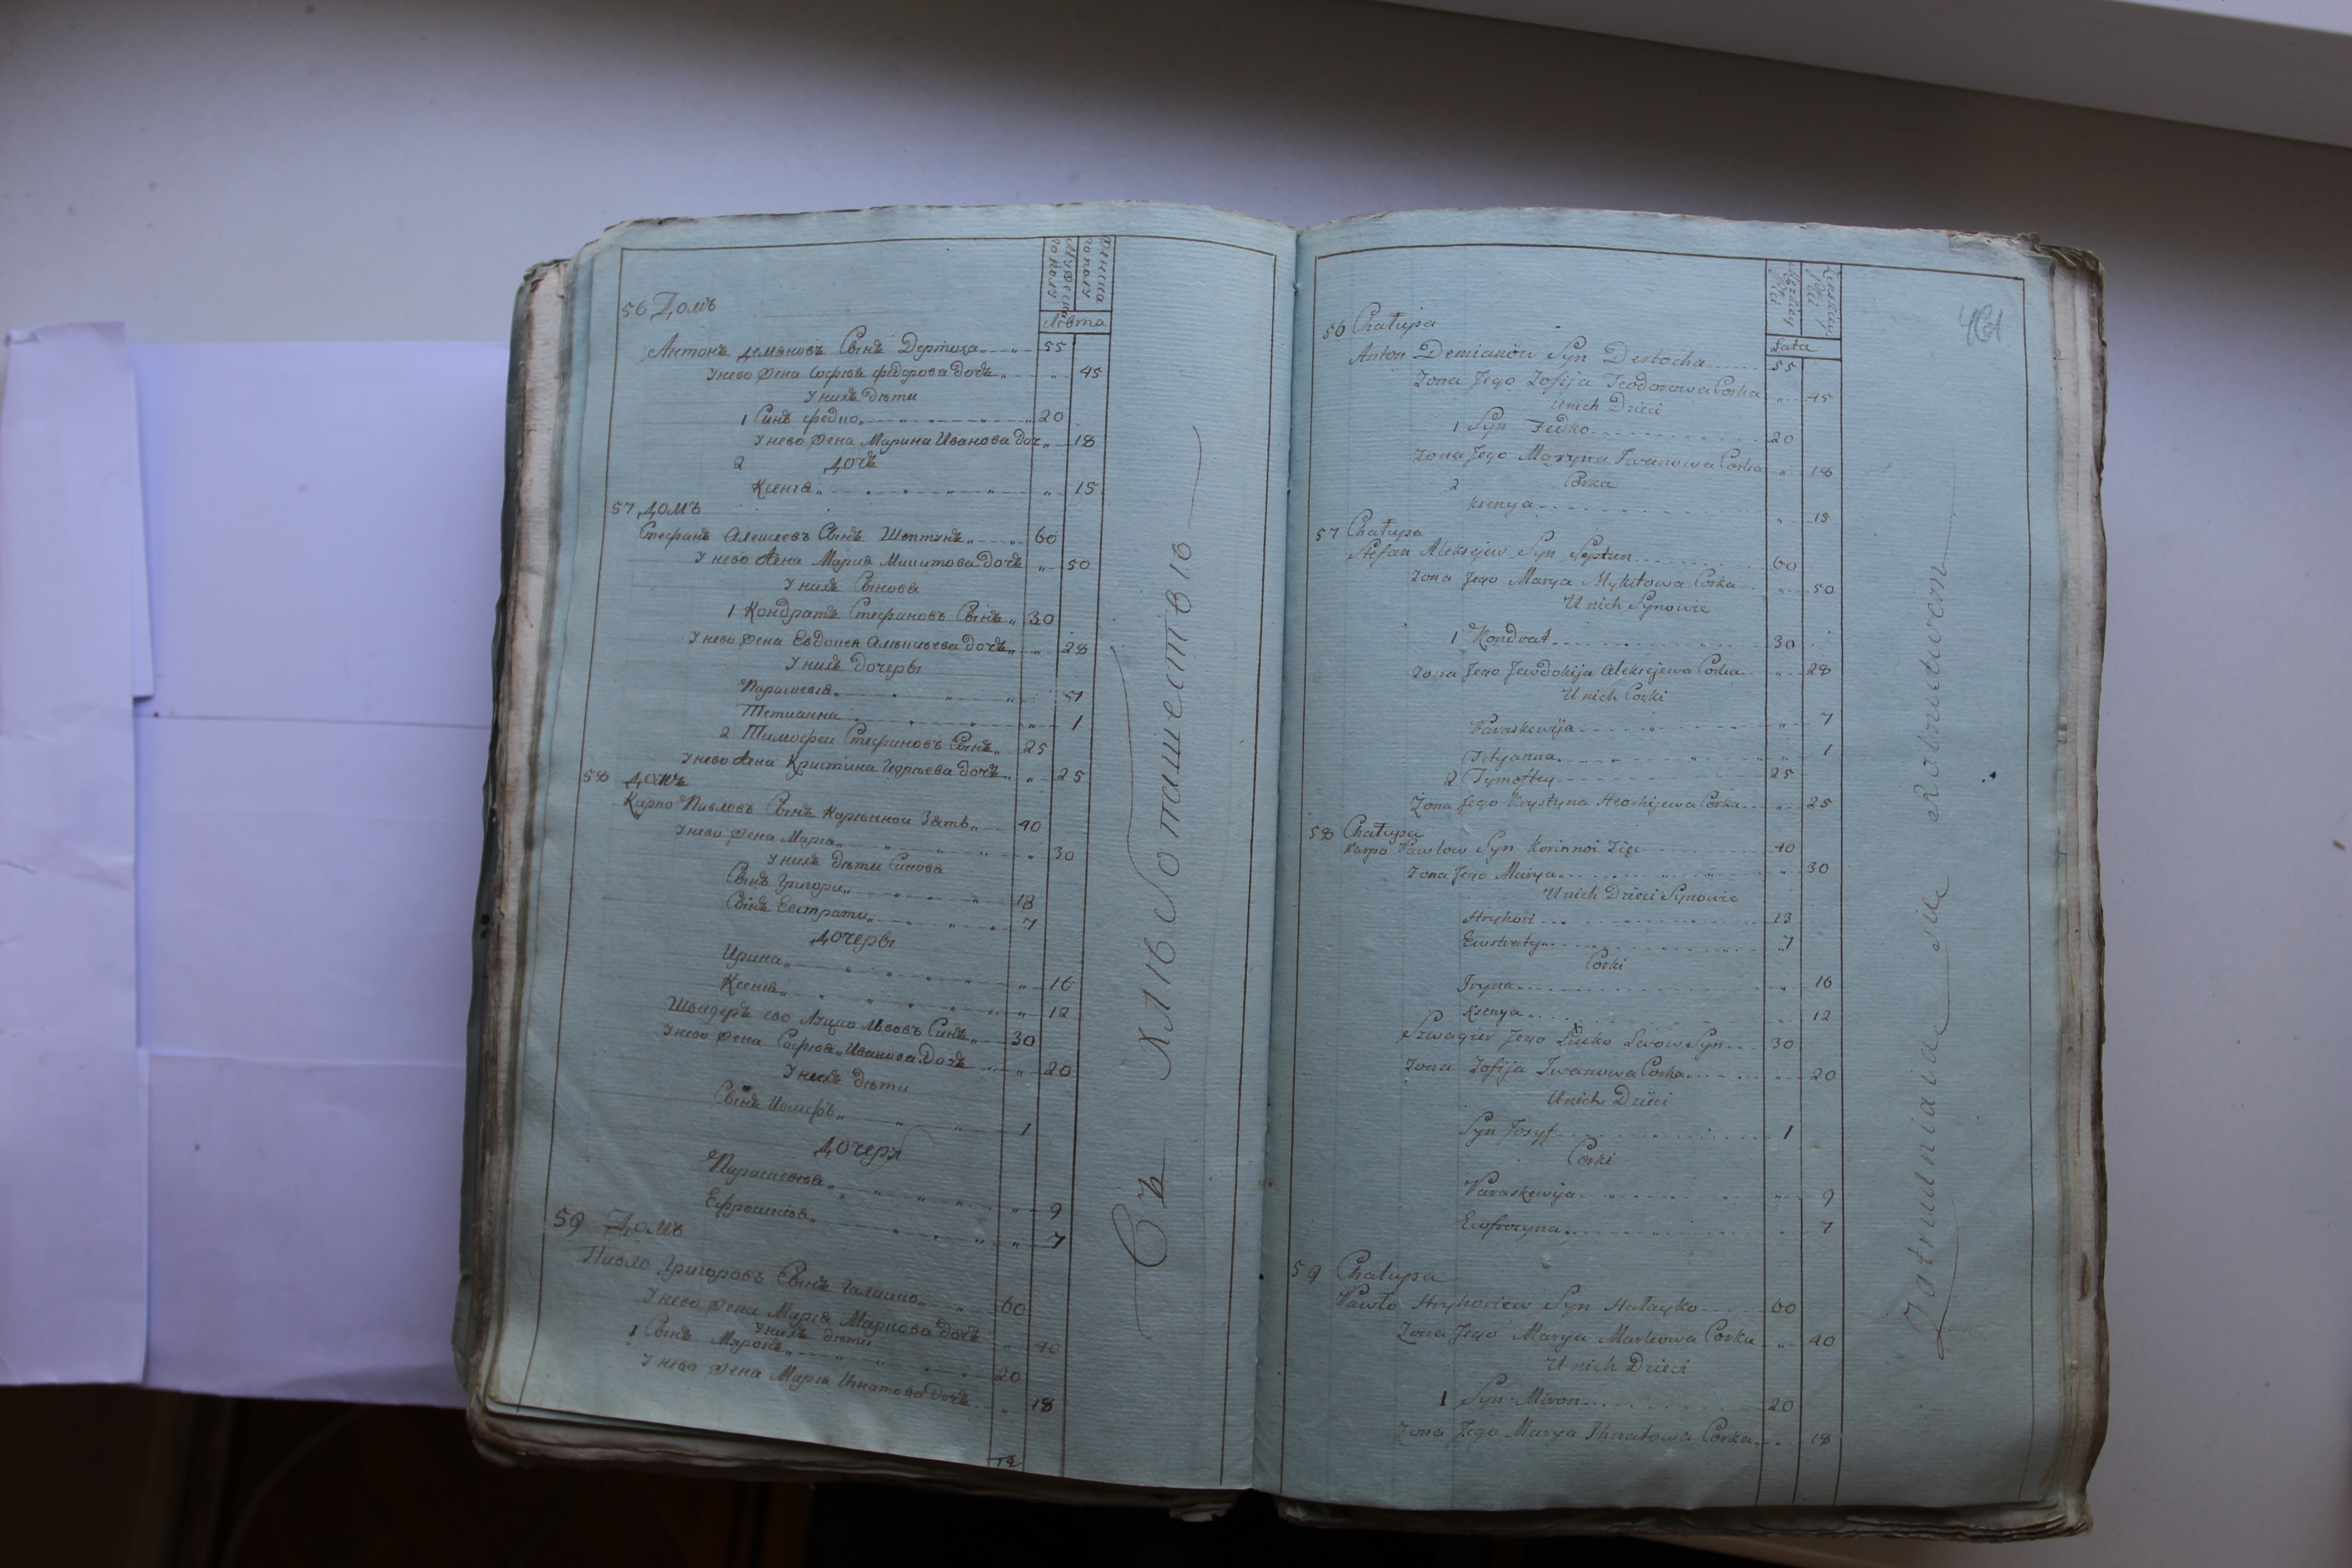 Мужеска го полу
Женска го полу
Лѣта
56 Домъ
Антонъ Демяновъ Сынъ Дертоха 55
У нево жена Софья Федорова дочь 45
У нихъ дѣти
1 Синъ Федко 20
У нево жена Марина Иванова доч 18
2 дочь
Ксеня 15
57 Домъ
Стефанъ Алексеевъ Сынъ Шептунъ 60
У нево жена Мария Микитова дочь 50
У нихъ Сынова
1 Кондратъ Стефановъ Сынъ 30
У нево жена Евдокея дочь 28
У нихъ дочеры
Параскевія 7
Тетианна 1
2 Тимофеи Стефановъ Сынъ 25
У нево жена Кристина Георгьева дочь 25
58 Домъ
Карпо Павловъ Сынъ Корѣнной Зять 40
У нево жена Марія 30
У нихъ дѣти Синова
Сынъ Григори 13
Сынъ Евстрати 7
Дочеры
Ирина 16
Ксенія 12
Швагеръ ево Луцко Львовъ Синъ 30
У нево жена Софья Иванова дочь 20
У нихъ дѣти
Сынъ Иосифъ 1
Дочеры
Параскевія 9
Ефросинія 7
59 Домъ
Павло Григоровъ Сынъ Галайко 60
У нево жена Марія Маркова дочь 40
У нихъ дѣти
1 Сынъ Миронъ 20
У нево жена Марія Игнатова дочь 18
Съ хлѣбопашествью
461
Męzkiey płci
Zenskiey płci
Lata
56 Chałupa
Anton Demianow Syn Dertocha 55
Zona Jego Zofija Teodorowa Corka 45
U nich Dzieci
1 Syn Fedko 20
Zona Jego Maryna Iwanowa Corka 18
2 Corka
Ksenya 15
57 Chałupa
Stefan Aleksejew Syn Szeptun 60
Zona Jego Marya Mykitowa Corka 50
U nich Synowie
1 Kondrat 30
Zona Jego Jewdokija Aleksejewa Corka 28
U nich Corki
Paraskewija 7
Tetyanna 1
2 Tymoftey 25
Zona Jego Krystyna Heorhijewa Corka 25
58 Chałupa
Karpo Pawłow Syn Korinnoi Zięc 40
Zona Jego Marya 30
U nich Dzieci Synowie
Hryhori 13
Ewstraty 7
Corki
Iryna 16
Ksenya 12
Szwagier Jego Łucko Lwow Syn 30
Zona Zofija Iwanowa Corka 20
U nich Dzieci
Syn Josyf 1
Corki
Paraskewija 9
Ewfrozyna 7
59 Chałupa
Pawło Hryhoriew Syn Hałayko 60
Zona Jego Marya Markowa Corka 40
U nich Dzieci
1 Syn Miron 20
Zona Jego Marya Ihnatowa Corka 18
Zatrudniaia się Rolnictwem